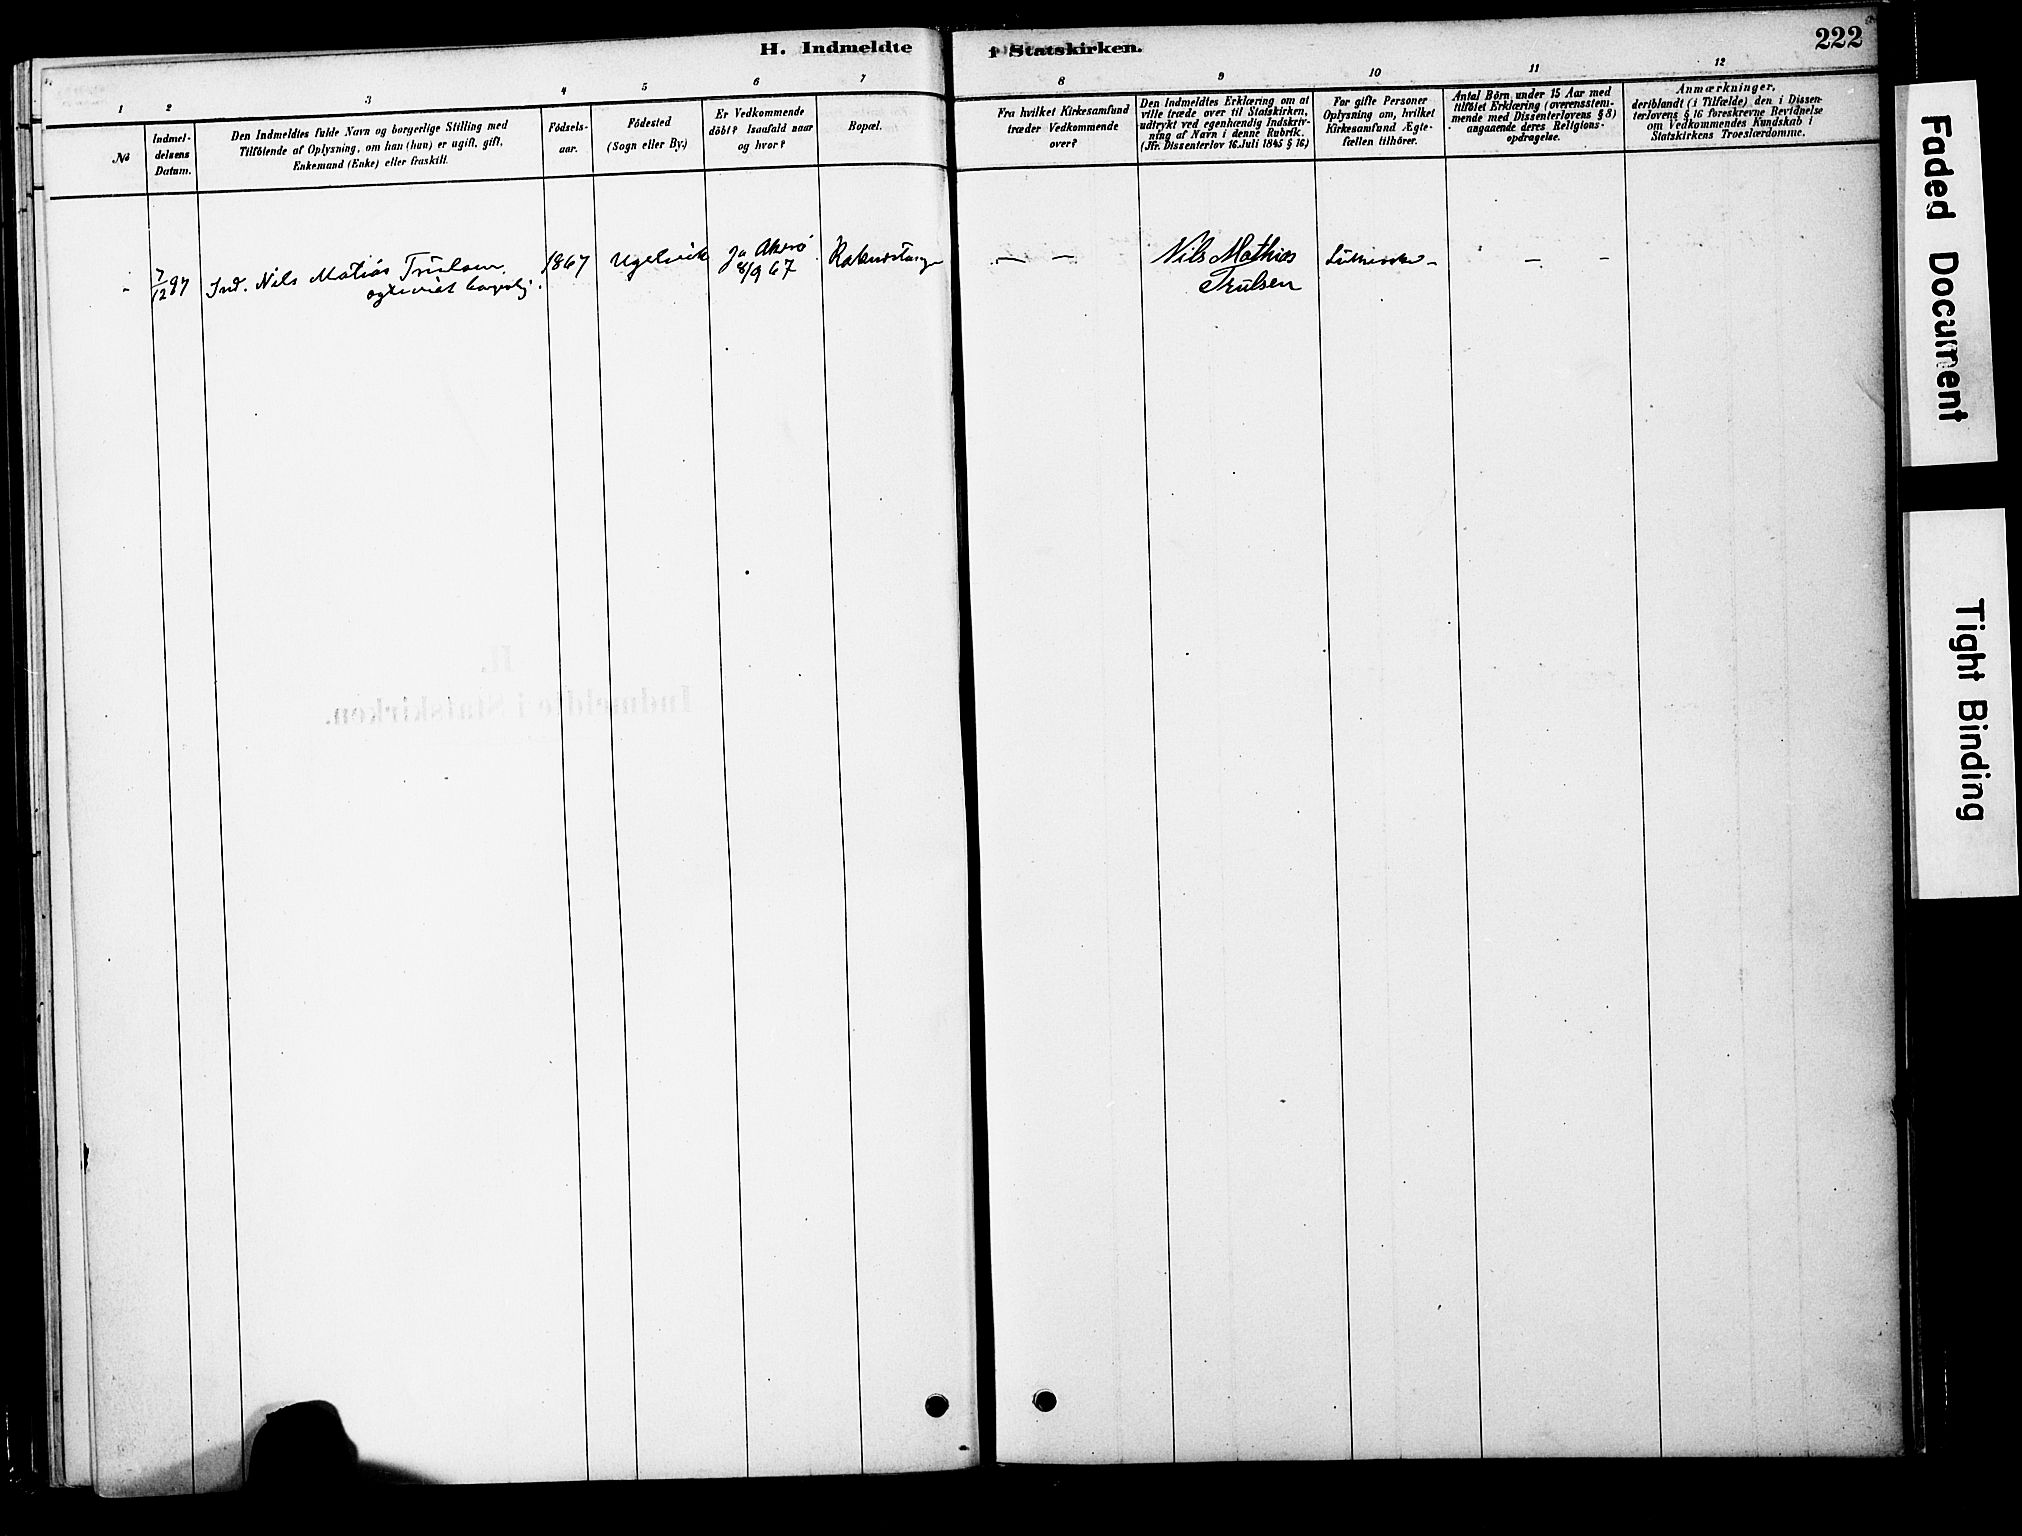 H. Indmeldte
i Statskirken.
222
1
2
3
4
5
6
7
8
9
10
11
12
No
Indmel-
delsens
Datum.
Den Indmeldtes fulde Navn og borgerlige Stilling med
Tilföiende af Oplysning, om han (hun) er ugift, gift,
Enkemand (Enke) eller fraskilt.
Födsels-
aar.
Födested
(Sogn eller By.)
Er Vedkommende
döbt? Isaafald naar
og hvor?
Bopæl.
Fra hvilket Kirkesamfund
træder Vedkommende
over?
Den Indmeldtes Erklæring om at
ville træde over til Statskirken,
udtrykt ved egenhændig Indskriv-
ning af Navn i denne Rubrik.
(Jfr. Dissenterlov 16. Juli 1845 § 16)
For gifte Personer
Oplysning om, hvilket
Kirkesamfund Ægte-
fællen tilhörer.
Antal Börn under 15 Aar med
tilföiet Erklæring (overensstem-
mende med Dissenterlovens § 8)
angaaende deres Religions-
opdragelse.
Anmærkninger,
deriblandt (i Tilfælde) den i Dissen-
terlovens § 16 foreskrevne Bevidnelse
om Vedkommendes Kundskab i
Statskirkens Troeslærdomme.
-
7/12 97
Ind. Nils Matias Trulsen,
borgerlig.
1867
Ugelvik
Ja Akerö
8/9 67
— —
Nils Mathias
Trulsen
— -
Faded Document
Tight Binding
H.
Indmeldte i Statskirken.